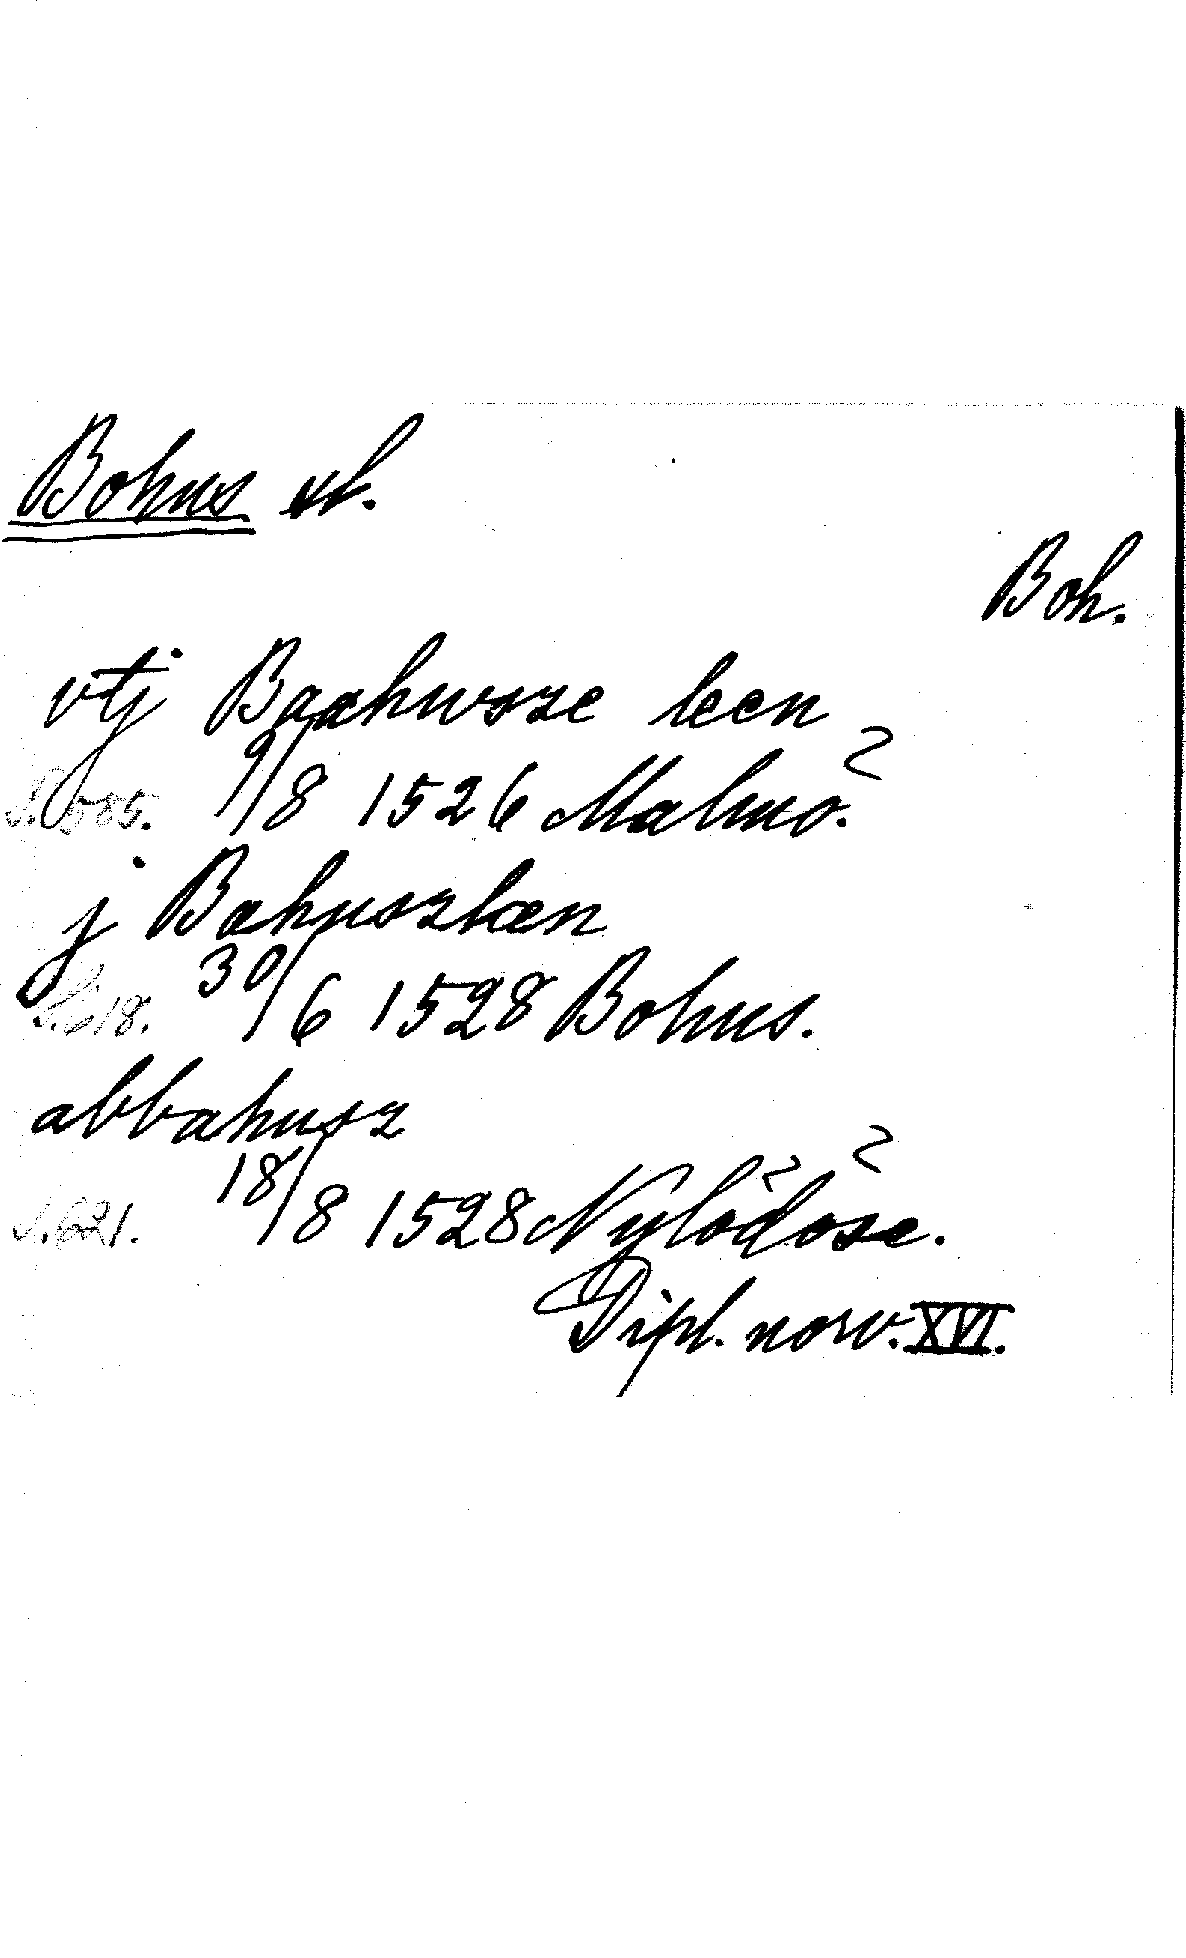 Bohus sl.
Boh.
vtj Baahwsze leen
S. 585. 9/8 1526 Malmö.
j Bahuszlæn
S. 618. 30/6 1528 Bohus.
abbahusz
S. 621. 18/8 1528 Nylödöse.
Dipl. norv. XVI.